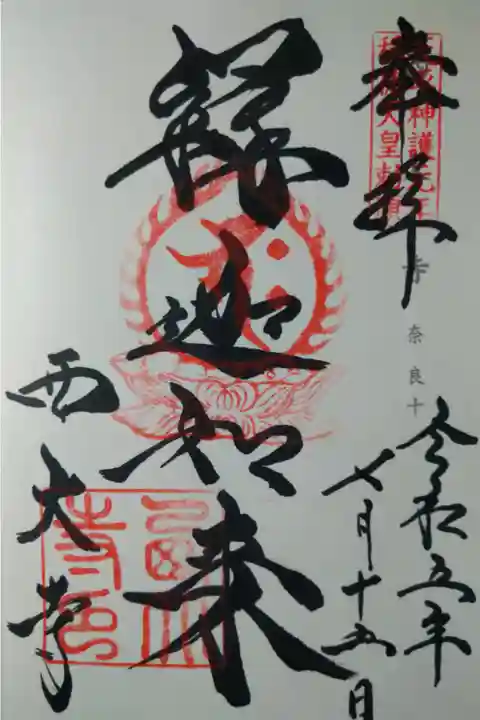 奉拝
天平神護元年
称徳天皇勅願
寺
奈良十
令和五年
七月十五日
釋迦如来
西大寺
西大寺印